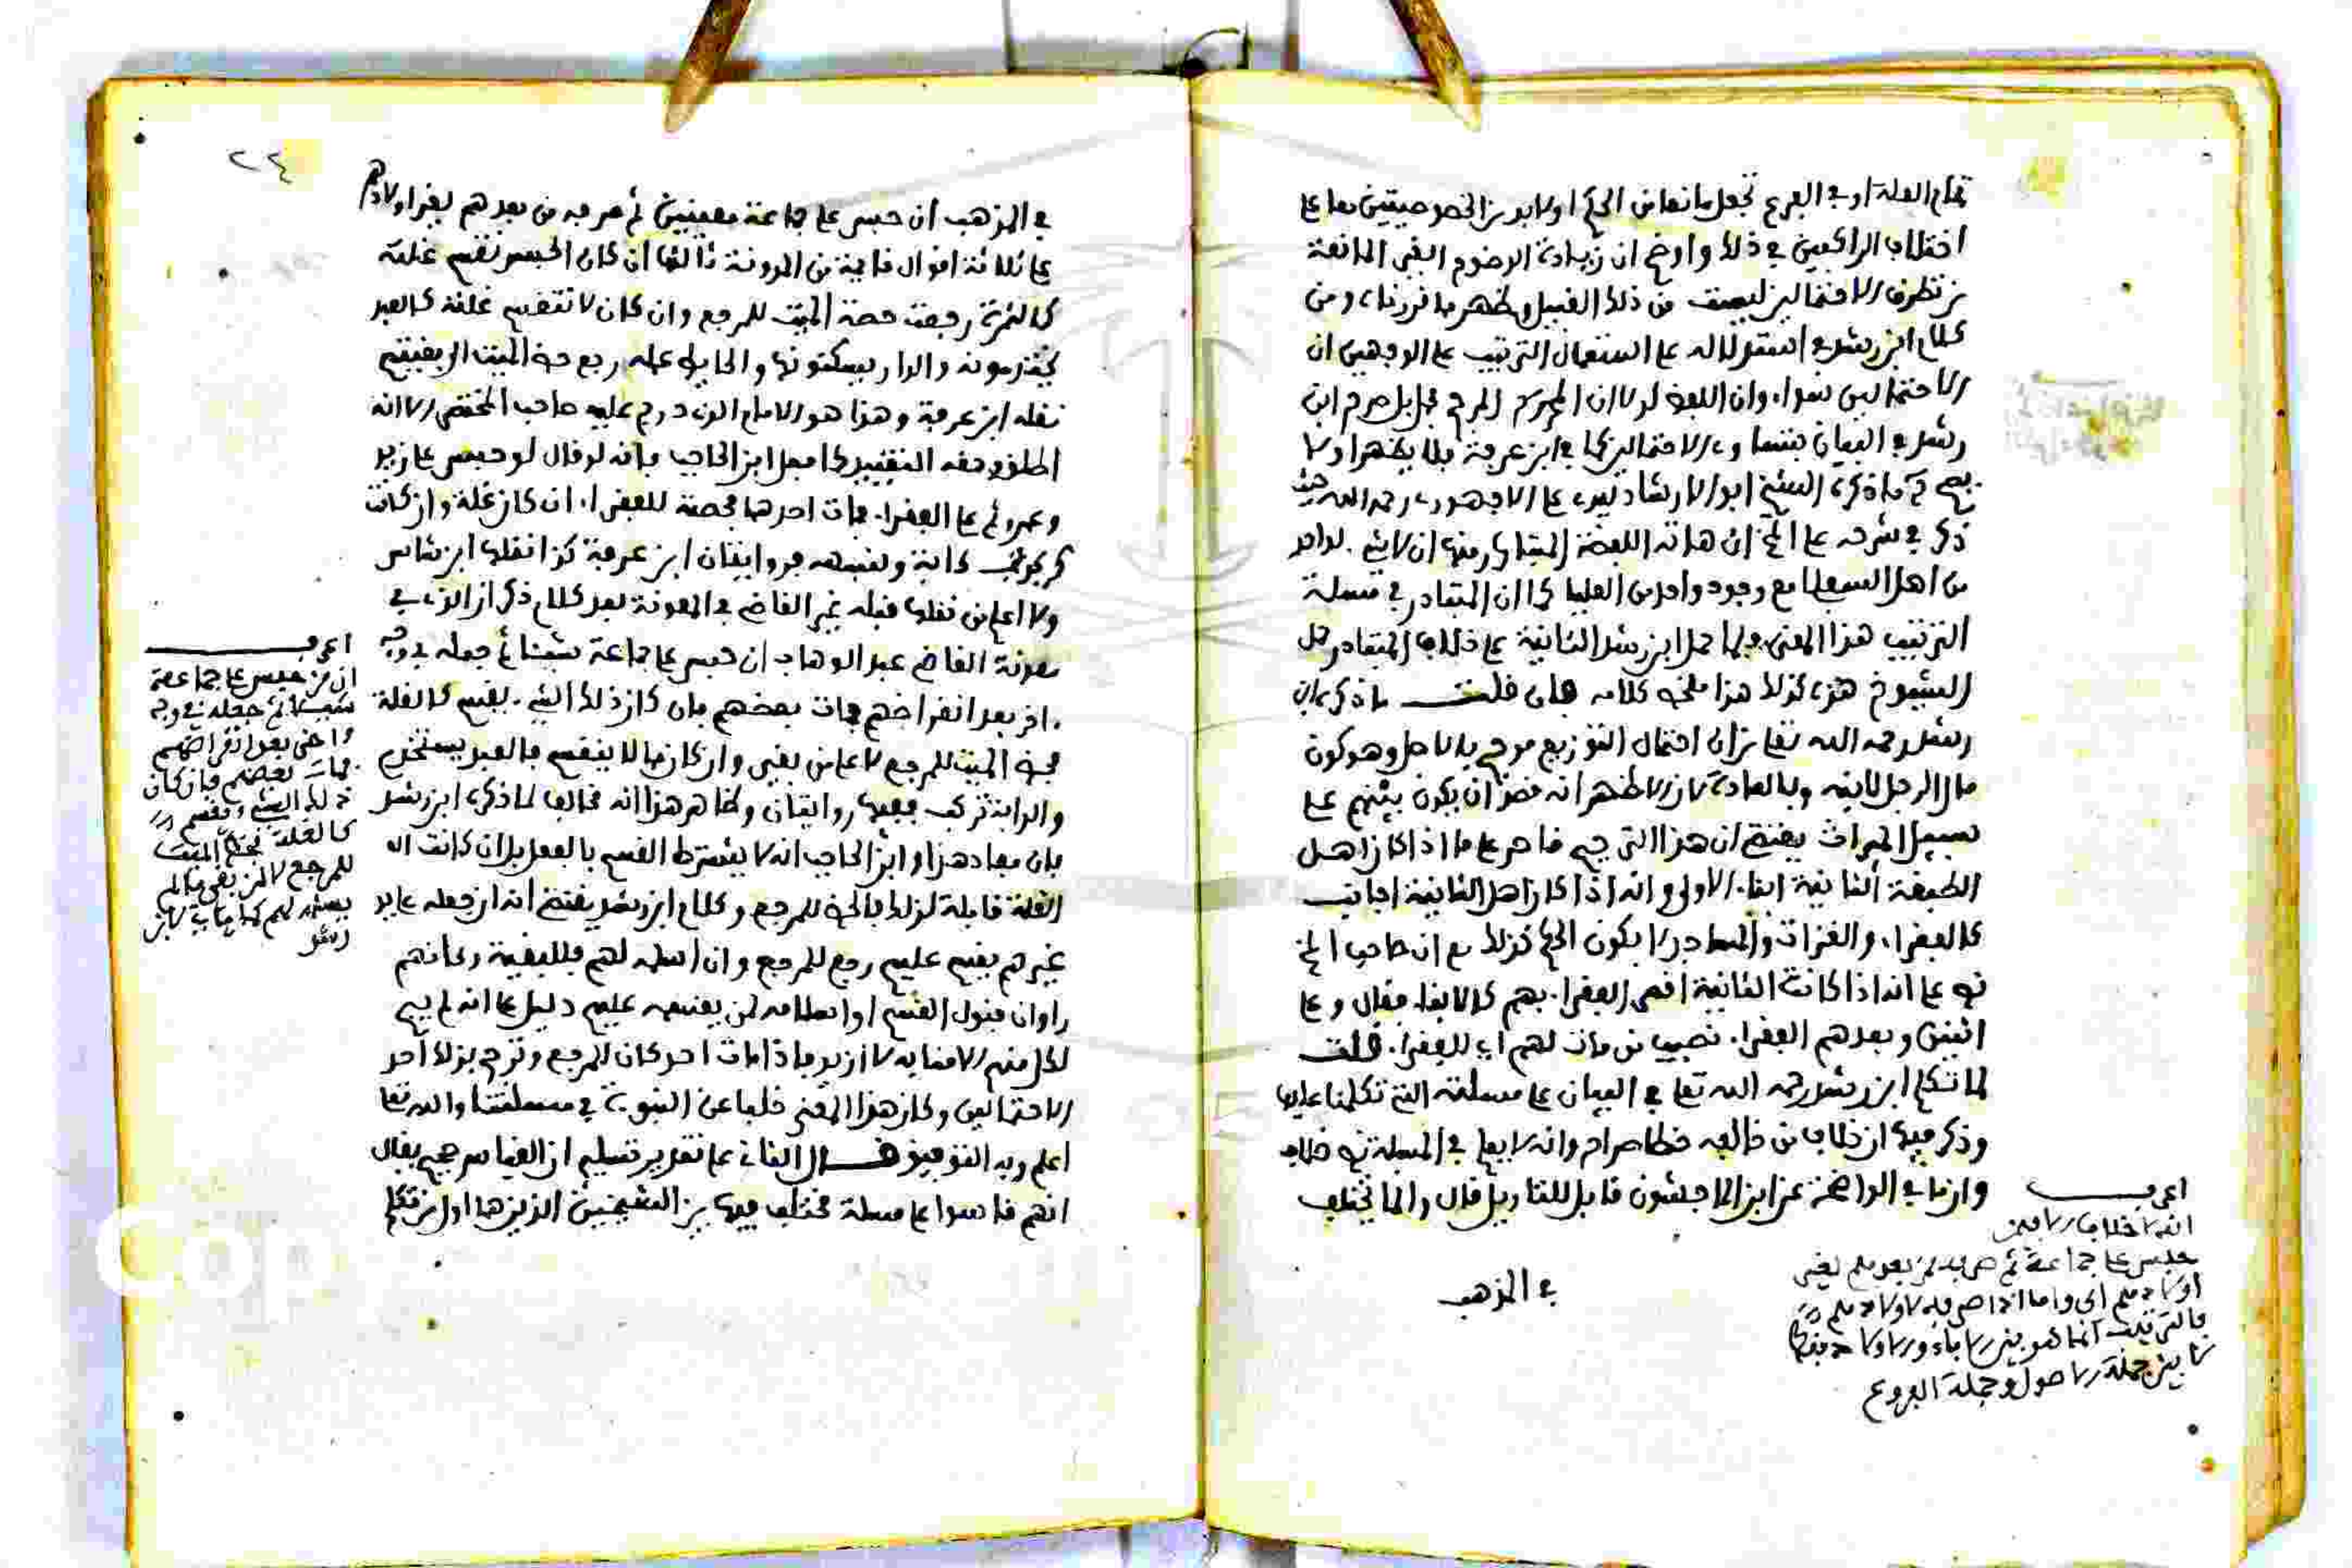 تمام العلة او في الفرع تجعل مانعا من الحكم اولا بد من الخصوصيتين معا على
اختلاف الراكعين في ذلك واوضح ان زيادة الوضوح البقي المانعة
من تطرق الاحتمالين ليست من ذلك القبيل وظهر ما قررناه ومن
كلام ابن رشد استدلاله على استعمال الترتيب على الوجهين ان
الاحتمالين سواء وان اللفظ لولا ان المحرك المرجح بل صرح ابن
رشد في البيان بتساوي الاحتمالين كما في ابن عرفة فلا يظهر اولا
يصح ما ذكره الشيخ ابو الارشاد سيدي علي الاجهوري رحمه الله حيث
ذكر في شرحه على المخ ان هاته اللفظة المتبادر منها ان لا شيء لواحد
من اهل السفلى مع وجود واحد من العليا كما ان المتبادر في مسئلة
الترتيب هذا المعنى فلما حمل ابن رشد الثانية على خلاف المتبادر حمل
الشيوخ هذه كذلك هذا ملخص كلامه فان قلت ما ذكره ابن
رشد رحمه الله تعا من ان احتمال التوزيع مرجح بالاصل وهو كون
مال الرجل لابنه وبالعادة لان الاظهر انه قصد ان يكون بينهم على
سبيل الميراث يقتضي ان هذا الترجيح قاصر على ما اذا كان اهل
الطبقة الثانية ابناء الاولى وانه اذا كان اهل الثانية اجانب
كالفقراء والغزاة والمساجد لا يكون الحكم كذلك مع ان صاحب المخ
نص على انه اذا كانت الثانية اقصى الفقراء بهم كالابناء فقال وعلى
اثنين وبعدهم الفقراء نصيب من مات لهم اي للفقراء قلت
لما تكلم ابن رشد رحمه الله تعا في البيان على مسئلته التي تكلمنا عليها
وذكر فيها ان خلاف من خالفه خطا صراح وانه لا يعلم في المسئلة نص خلاف
وان ما في الواضحة عن ابن الماجشون قابل للتاويل قال وانما يختلف
في المذهب
اعرف
انه لا خلاف لا فيمن
حبس على جماعة ثم صرفه لمن بعدهم يعني
اولادهم الى واما اذا صرفه لاولادهم
فالترتيب انما هو بين الاباء والاولاد بنظر
لا بين جملة الاصول وجملة الفروع
٢٤
في المذهب ان حبس على جماعة معينين ثم صرفه من بعدهم لغير اولادهم
على ثلاثة اقوال قايمة من المدونة ثالثها ان كان الحبس تقسم غلته
كالثمرة رجعت حصة الميت للمرجع وان كان لا تنقسم غلته كالعبد
يختدمونه والدار يسكنونها والحايط عمله رجع حظ الميت الى بقيتهم
نقله ابن عرفة وهذا هو الامام الذي درج عليه صاحب المختصر الا انه
اطلق وحقه التقييد كما فعل ابن الحاجب فانه لو قال لو حبس على زيد
وعمرو ثم على الفقراء فمات احدهما فحصته للفقراء ان كان غلة وان كانت
كركوب دابة وشبهه فروايتان ابن عرفة كذا نقلها ابن شاس
ولا اعلم من نقلها قبله غير القاضي في المعونة بعد كلام ذكر ان الذي في
معونة القاضي عبد الوهاب ان حبس على جماعة شيئا ثم جعله في وجه
اخر بعد انقراضهم فمات بعضهم فان كان ذلك الشيء يقسم كالغلة
فحظ الميت للمرجع لا على من بقي وان كان مما لا ينقسم فالعبد يستخدم
والدابة تركب ففيها روايتان وظاهر هذا انه مخالف لما ذكره ابن رشد
بان مفاد هذا وابن الحاجب انه لا يشترط القسم بالفعل بل ان كانت اله
الغلة قابلة لذلك فالحظ للمرجع وكلام ابن رشد يقتضي انه ان جعله على يد
غيرهم يقسم عليهم رجع للمرجع وان اسلمه لهم فللبقية وكانهم
راوا ان قبول القسم او اسلامه لمن يقسمه عليهم دليل على انه لم يبق
لكل منهم الا منابه لا ازيد فاذا مات احد كان للمرجع وترجح بذلك احد
الاحتمالين وكان هذا المعنى خليا عن الثبوت في مسئلتنا والله تعا
اعلم وبه التوفيق فصل الثاني على تقدير تسليم ان القياس صحيح يقال
انهم قاسوا على مسئلة مختلف فيها بين الشيخين الذين هما اول من تكلم
اعرف
ان من حبس على جماعة
شيئا ثم جعله في وجه
اخر بعد انقراضهم
فمات بعضهم فان كان
ذلك الشيء يقسم
كالغلة فحظ الميت
للمرجع لا لمن بقي ما لم
يسنده لهم كما في ابن
رشد